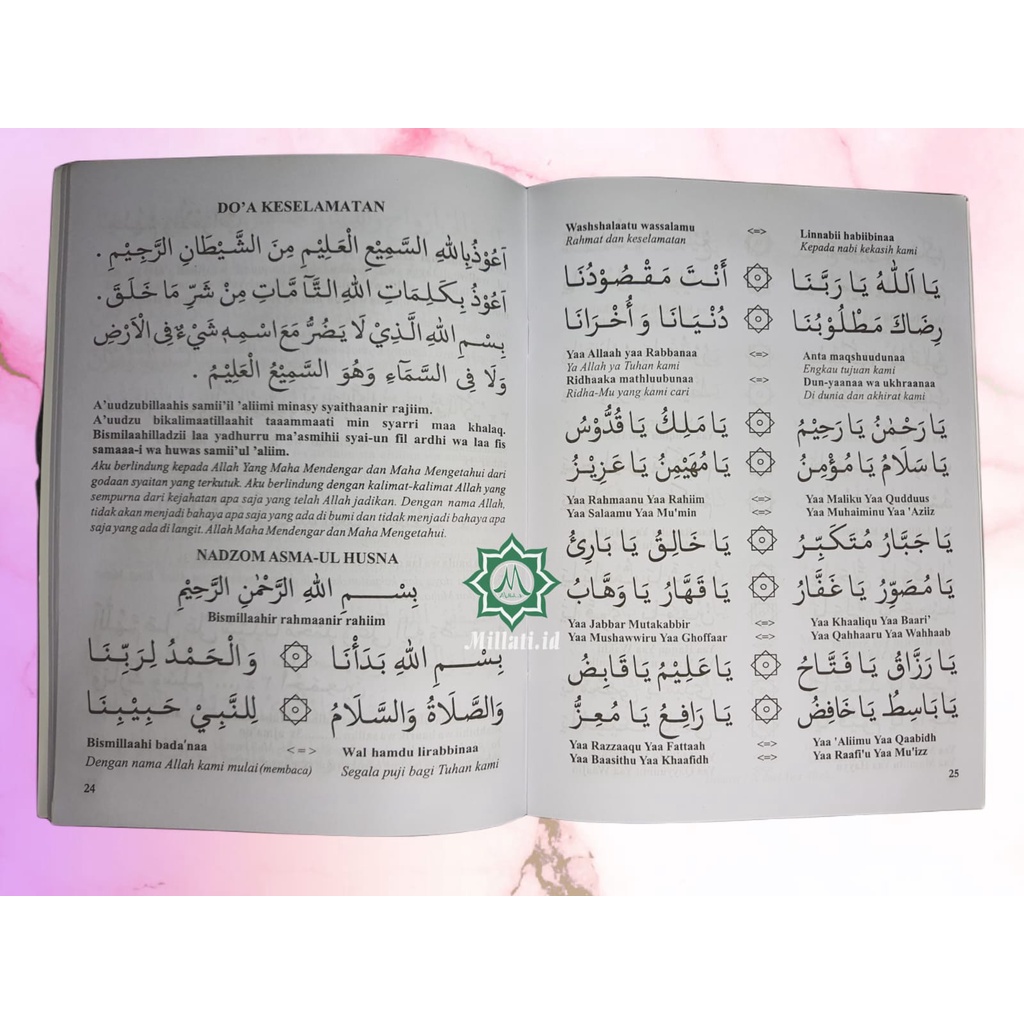 DO'A KESELAMATAN
اَعُوْذُبِاللهِ السَّمِيْعِ الْعَلِيْمِ مِنَ الشَّيْطَانِ الرَّجِيْمِ .
اَعُوْذُ بِكَلِمَاتِ اللهِ التَّآمَّاتِ مِنْ شَرِّ مَا خَلَقَ .
بِسْمِ اللهِ الَّذِيْ لَا يَضُرُّ مَعَ اسْمِهٖ شَيْءٌ فِى الْاَرْضِ
وَلَا فِى السَّمَآءِ وَهُوَ السَّمِيْعُ الْعَلِيْمُ .
A'uudzubillaahis samii'il 'aliimi minasy syaithaanir rajiim.
A'uudzu bikalimaatillaahit taaammaati min syarri maa khalaq.
Bismilaahilladzii laa yadhurru ma'asmihii syai-un fil ardhi wa laa fis
samaaa-i wa huwas samii'ul 'aliim.
Aku berlindung kepada Allah Yang Maha Mendengar dan Maha Mengetahui dari
godaan syaitan yang terkutuk. Aku berlindung dengan kalimat-kalimat Allah yang
sempurna dari kejahatan apa saja yang telah Allah jadikan. Dengan nama Allah,
tidak akan menjadi bahaya apa saja yang ada di bumi dan tidak menjadi bahaya apa
saja yang ada di langit. Allah Maha Mendengar dan Maha Mengetahui.
NADZOM ASMA-UL HUSNA
بِسْمِ اللهِ الرَّحْمٰنِ الرَّحِيْمِ
Bismillaahir rahmaanir rahiim
بِسْمِ اللهِ بَدَأْنَا ۞ وَالْحَمْدُ لِرَبِّنَا
وَالصَّلَاةُ وَالسَّلَامُ ۞ لِلنَّبِيْ حَبِيْبِنَا
Bismillaahi bada'naa <=> Wal hamdu lirabbinaa
Dengan nama Allah kami mulai (membaca) Segala puji bagi Tuhan kami
24
Millati.id
Washshalaatu wassalamu <=> Linnabii habiibinaa
Rahmat dan keselamatan Kepada nabi kekasih kami
يَا اَللهُ يَا رَبَّنَا ۞ أَنْتَ مَقْصُوْدُنَا
رِضَاكَ مَطْلُوْبُنَا ۞ دُنْيَانَا وَ أُخْرَانَا
Yaa Allaah yaa Rabbanaa <=> Anta maqshuudunaa
Ya Allah ya Tuhan kami Engkau tujuan kami
Ridhaaka mathluubunaa <=> Dun-yaanaa wa ukhraanaa
Ridha-Mu yang kami cari Di dunia dan akhirat kami
يَا رَحْمٰنُ يَا رَحِيْمُ ۞ يَا مَلِكُ يَا قُدُّوْسُ
يَا سَلَامُ يَا مُؤْمِنُ ۞ يَا مُهَيْمِنُ يَا عَزِيْزُ
Yaa Rahmaanu Yaa Rahiim <=> Yaa Maliku Yaa Qudduus
Yaa Salaamu Yaa Mu'min <=> Yaa Muhaiminu Yaa 'Aziiz
يَا جَبَّارُ مُتَكَبِّرُ ۞ يَا خَالِقُ يَا بَارِئُ
يَا مُصَوِّرُ يَا غَفَّارُ ۞ يَا قَهَّارُ يَا وَهَّابُ
Yaa Jabbar Mutakabbir <=> Yaa Khaaliqu Yaa Baari'
Yaa Mushawwiru Yaa Ghoffaar <=> Yaa Qahhaaru Yaa Wahhaab
يَا رَزَّاقُ يَا فَتَّاحُ ۞ يَا عَلِيْمُ يَا قَابِضُ
يَا بَاسِطُ يَا خَافِضُ ۞ يَا رَافِعُ يَا مُعِزُّ
Yaa Razzaaqu Yaa Fattaah <=> Yaa 'Aliimu Yaa Qaabidh
Yaa Baasithu Yaa Khaafidh <=> Yaa Raafi'u Yaa Mu'izz
25